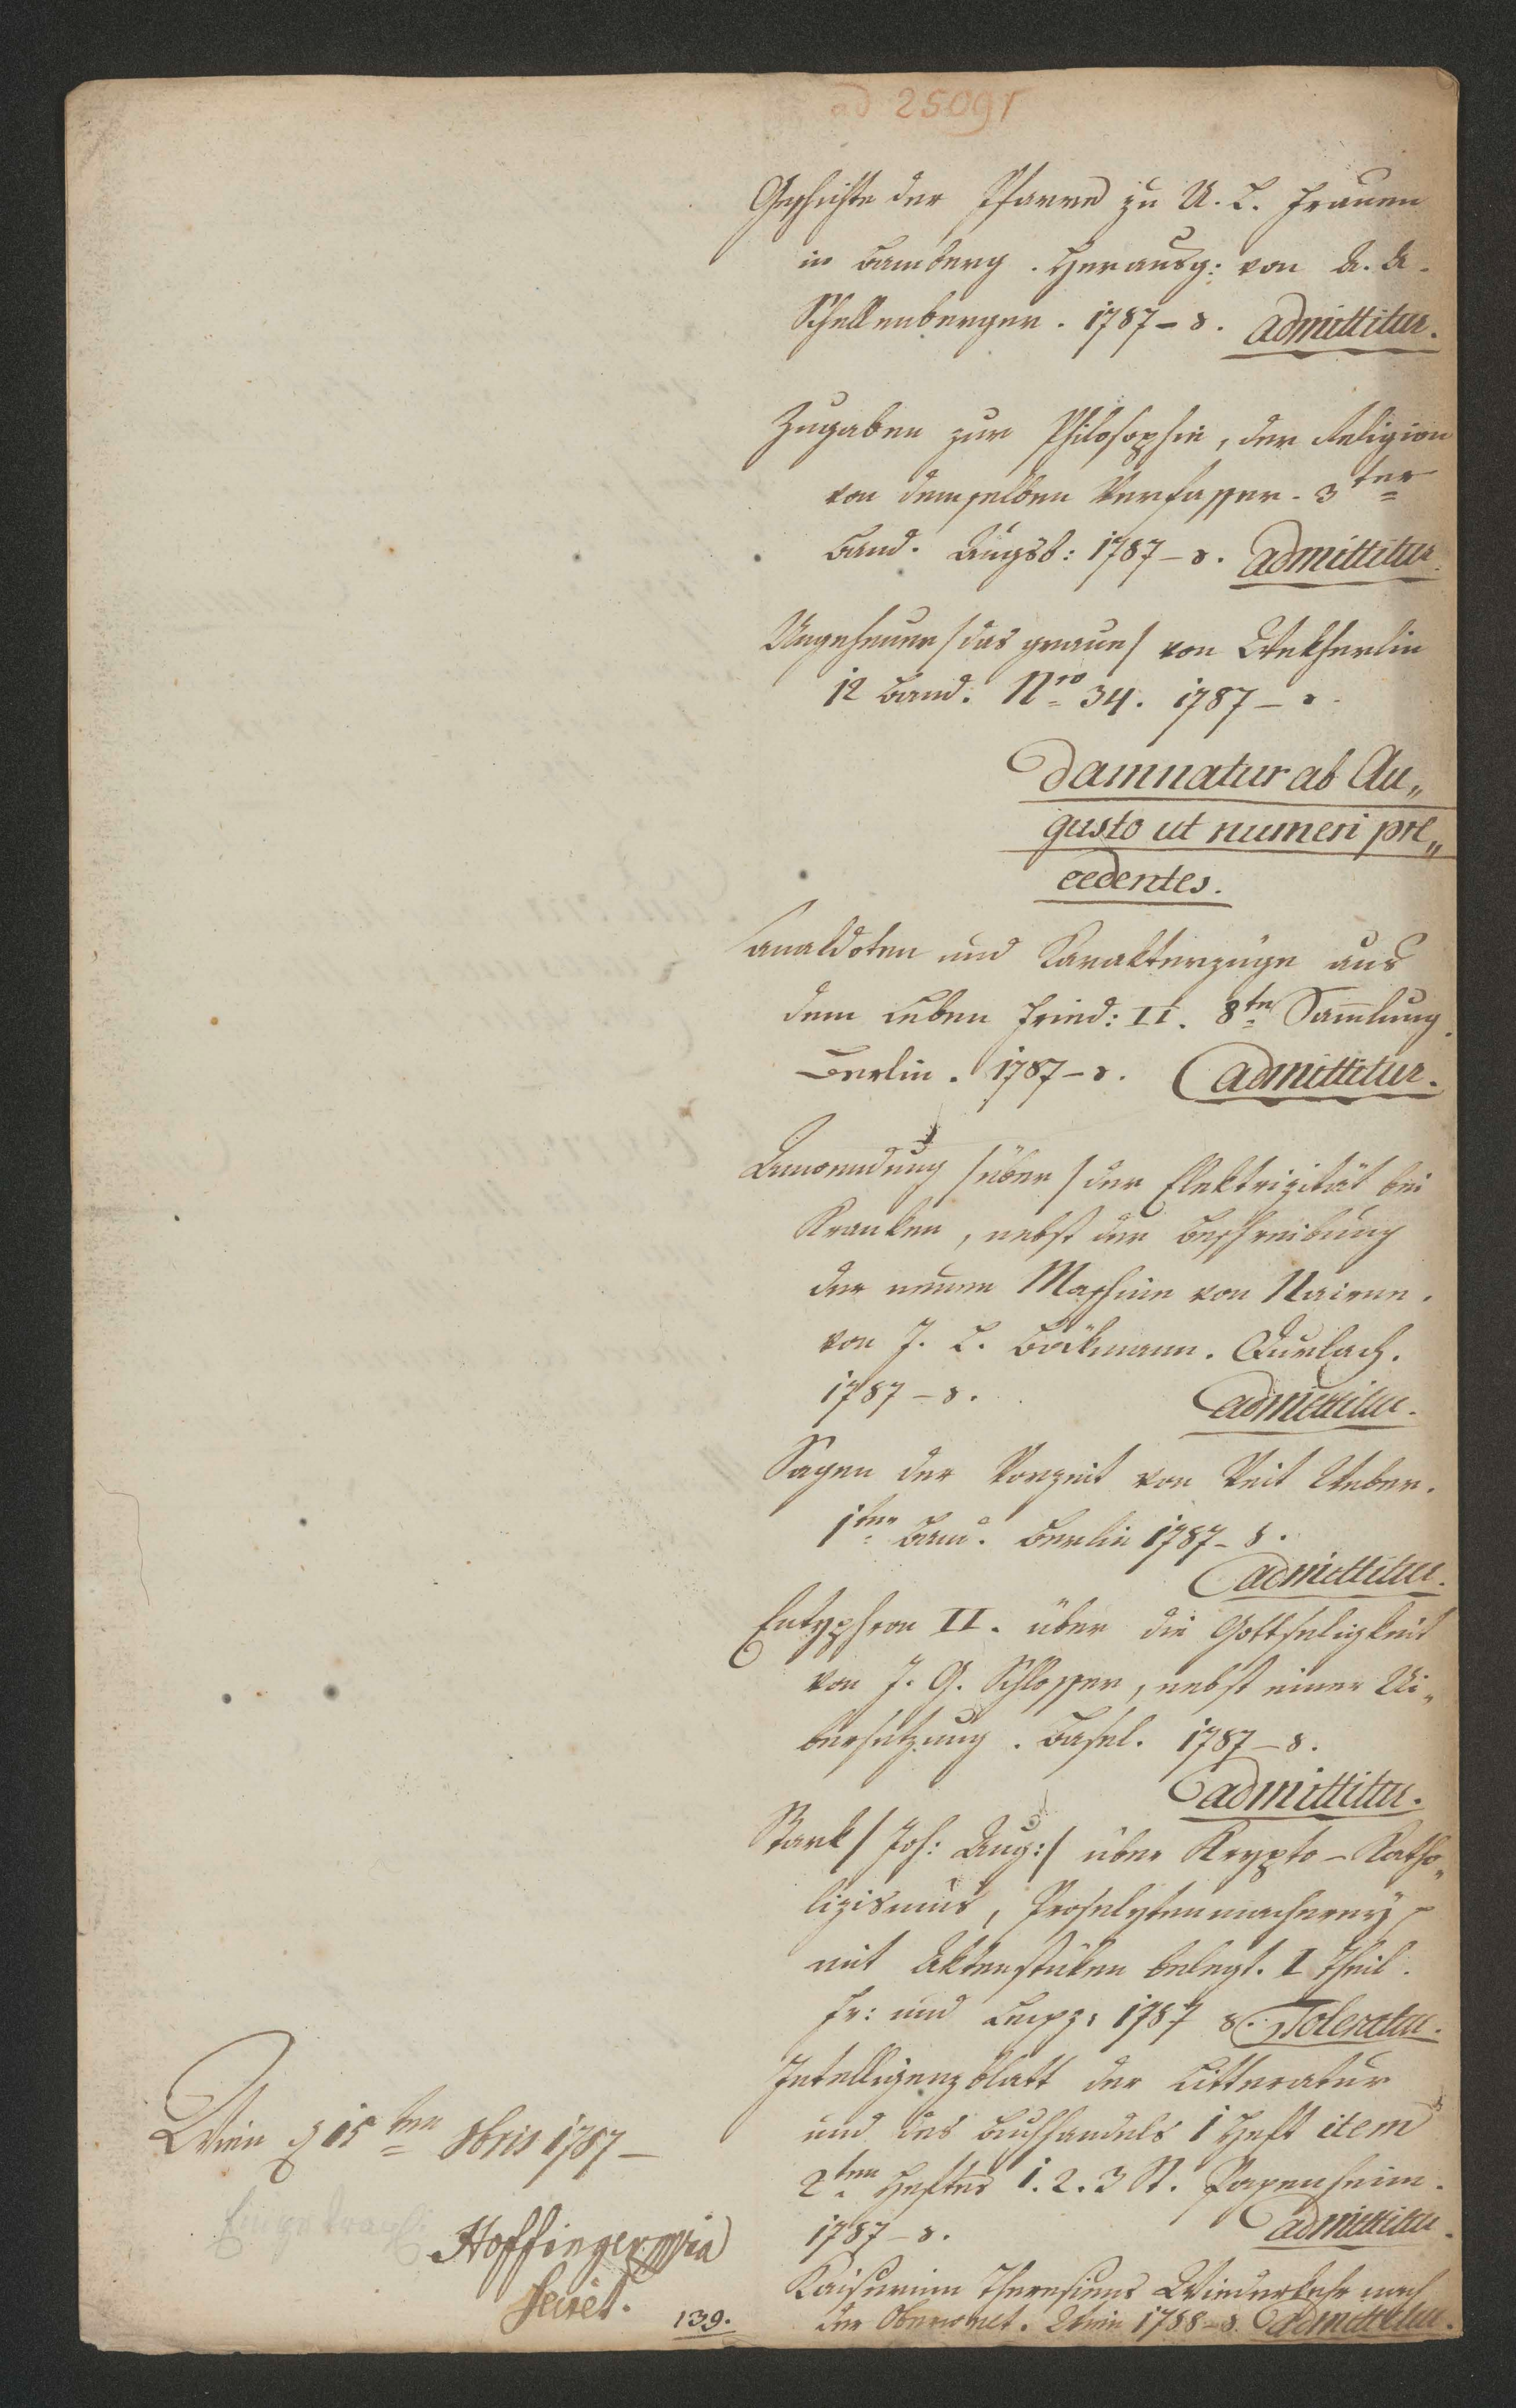 ad 25091
Geschichte der Pfarre zu U. L. Frauen
in Bamberg. Herausg: von A. A.
Schellenberger. 1787 – 8. admittitur.
Zugaben zur Philosophie, der Religion
von demselben Verfasser. 3ter
Band. Augsb: 1787 – 8. admittitur.
Ungeheuer /das graue/ von Wekherlin
12 Band. Nro 34. 1787 – 8.
damnatur ab Au„
gusto ut numeri præ„
cedentes.
Anekdoten und Karakterzüge aus
dem Leben Fried: II. 8te Samlung.
Berlin. 1787 – 8. admittitur.
Anwendung /über/ der Elektrizität bei
Kranken, nebst der Beschreibung
der neuen Maschine von Nairne.
von J. L. Böckmann. Durlach.
1787 – 8. admittitur.
Sagen der Vorzeit von Veit Weber.
1ter Band. Berlin 1787 – 8.
admittitur.
Eutyphron II. über die Gottseligkeit
von J. G. Schlosser, nebst einer Ui„
bersetzung. Basel. 1787 – 8.
admittitur.
Stark /Joh: Aug:/ über Krypto – Katho„
lizismus, Proselytenmacherey
mit Aktenstüken belegt. I Theil.
Fr: und Leipz: 1787 8. Toleratur.
Intelligenzblatt der Litteratur
und des Buchhandels 1 Heft item
2ten Heftes 1. 2. 3 St. Papenheim.
1787 – 8. admittitur.
Kaiserinn Theresiens Wiederkehr nach
der Oberwelt. Wien 1788 – 8. admittitur.
Wien d 15ten 8bris 1787 –
Hoffinger mpia
Secret.
139.